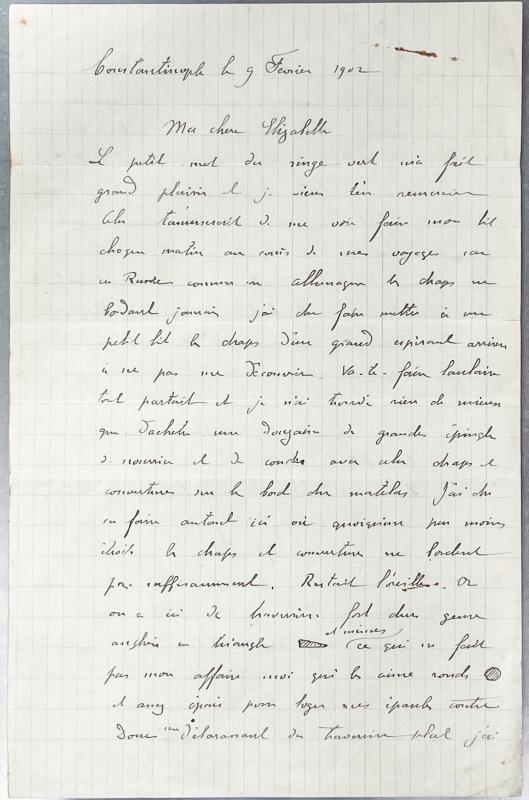 Constantinople le 9 Février 1902
Ma chère Elizabeth
Le petit mot du singe vert m'a fait
grand plaisir et je viens t'en remercier
Cela t'amuserait de me voir faire mon lit
chaque matin au cours de mes voyages car
en Russie comme en Allemagne les draps ne
bordant jamais j'ai du faire mettre à un
petit lit les draps d'un grand espérant arriver
à ne pas me découvrir. Va-te-faire
tout partait et je n'ai trouvé rien de mieux
que d'acheter une douzaine de grandes épingles
de nourrice et de coudre avec elles draps et
couvertures sur le bord du matelas. J'ai du
en faire autant ici où quoiqu'un peu moins
étroits les draps et couvertures ne bordent
pas suffisamment. Restait l'oreiller. Or
on a ici de traversins fort durs genre
anglais en triangle et minces ce qui ne fait
pas mon affaire moi qui les aime ronds
et assez épais pour loger mes épaules contre
Donc me débarrassant du traversin plat j'ai